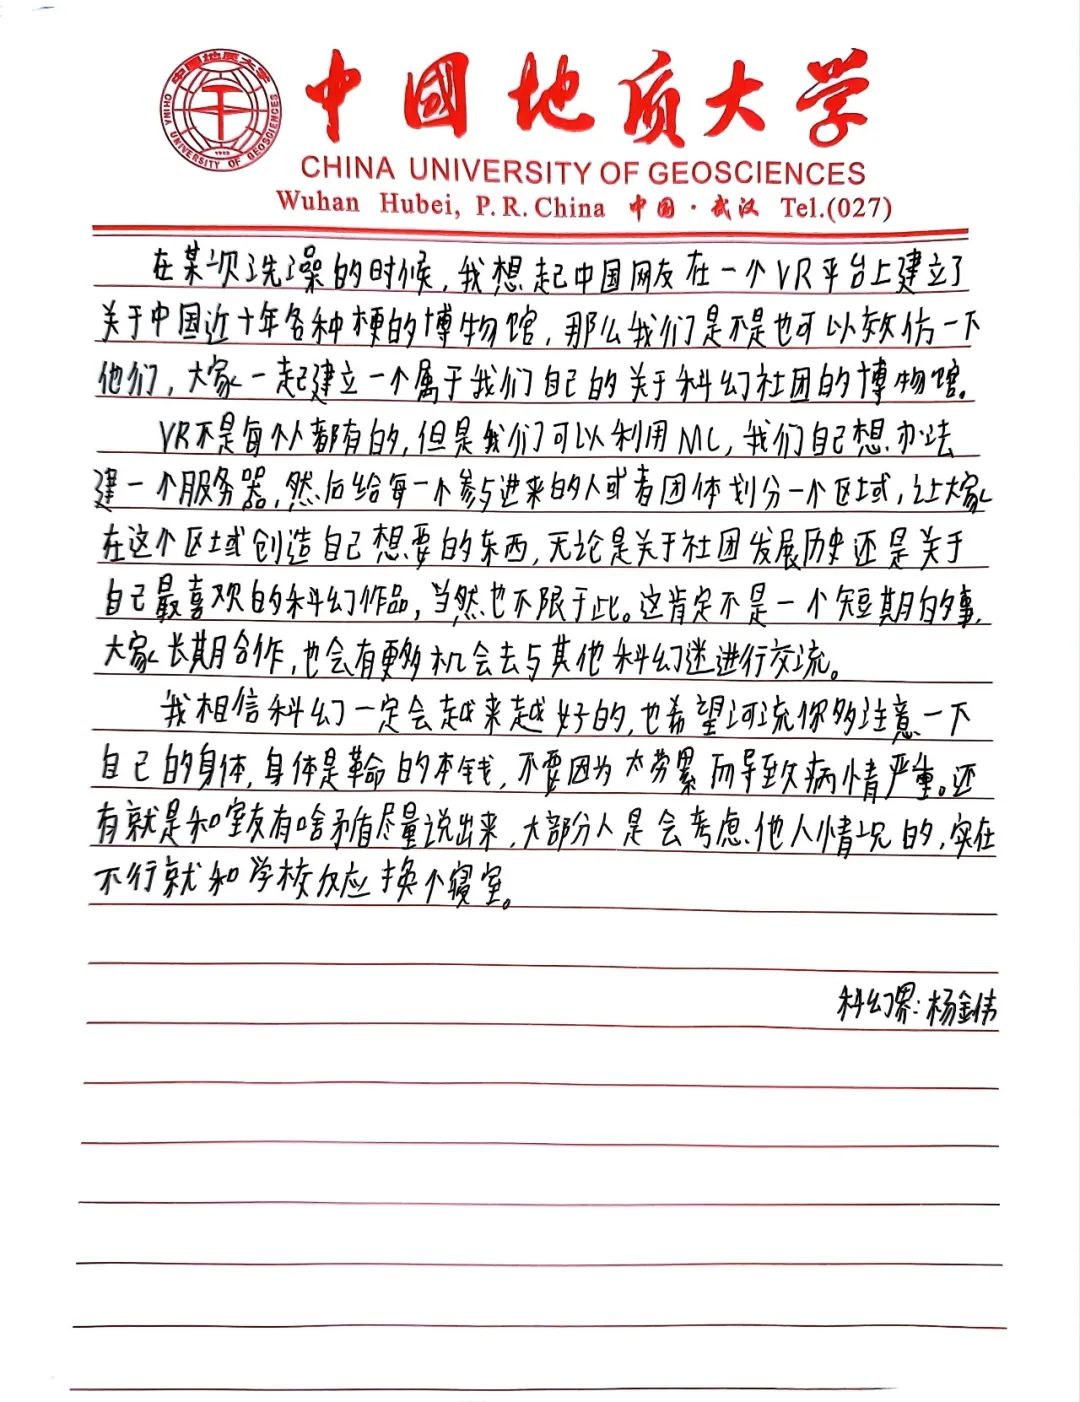 中國地质大学
CHINA UNIVERSITY OF GEOSCIENCES
Wuhan Hubei, P.R.China 中国·武汉 Tel.(027)
在某次洗澡的时候,我想起中国网友在一个VR平台上建立了
关于中国近十年各种梗的博物馆,那么我们是不是也可以效仿一下
他们,大家一起建立一个属于我们自己的关于科幻社团的博物馆。
VR不是每个人都有的,但是我们可以利用MC,我们自己想办法
建一个服务器,然后给每一个参与进来的人或者团体划分一个区域,让大家
在这个区域创造自己想要的东西,无论是关于社团发展历史还是关于
自己最喜欢的科幻作品,当然也不限于此。这肯定不是一个短期的事,
大家长期合作,也会有更多机会去与其他科幻迷进行交流。
我相信科幻一定会越来越好的,也希望河流你多注意一下
自己的身体,身体是革命的本钱,不要因为太劳累而导致病情严重。还
有就是和室友有啥矛盾尽量说出来,大部分人是会考虑他人情况的,实在
不行就和学校反应换个寝室。
科幻界:杨金伟
中国地质大学
CHINA UNIVERSITY OF GEOSCIENCES
1952